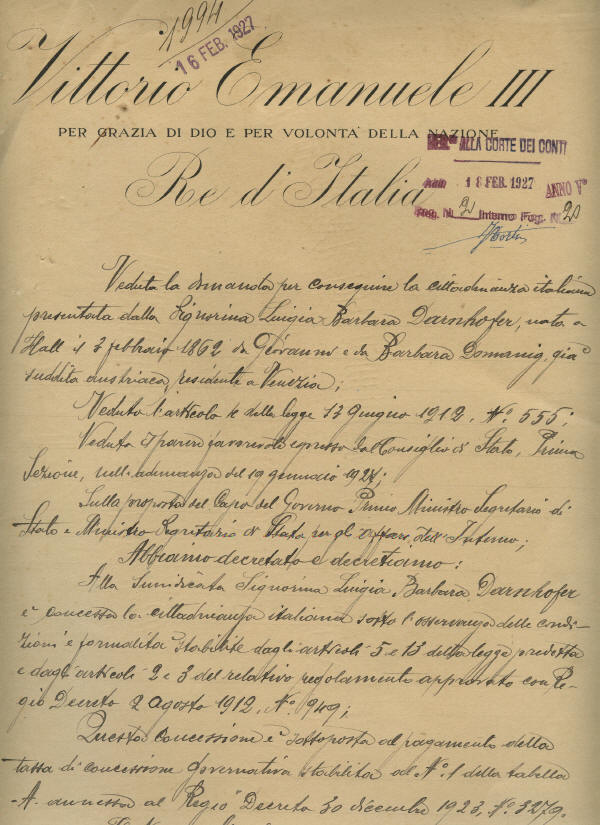 1994
16 FEB. 1927
Vittorio Emanuele III
PER GRAZIA DI DIO E PER VOLONTA' DELLA NAZIONE
Re d'Italia
ALLA CORTE DEI CONTI
18 FEB. 1927 ANNO Vº
Reg. N. 2 Interno Fog. N.
Veduta la domanda per conseguire la cittadinanza italiana
presentata dalla Signorina Luigia Barbara Darnhofer, nata a
Hall il 3 febbraio 1862 da Giovanni e da Barbara Domanig, già
suddita austriaca, residente a Venezia;
Veduto l'articolo 4 della legge 13 Giugno 1912, Nº 555;
Veduto il parere favorevole espresso dal Consiglio di Stato, Prima
Sezione, nell'adunanza del 19 gennaio 1927;
Sulla proposta del Capo del Governo Primo Ministro Segretario di
Stato e Ministro Segretario di Stato per gli Affari dell'Interno;
Abbiamo decretato e decretiamo:
Alla Signorina Luigia Barbara Darnhofer
è concessa la cittadinanza italiana sotto l'osservanza delle condi-
zioni e formalità stabilite dagli articoli 5 e 13 della legge predetta
e dagli articoli 2 e 3 del relativo regolamento approvato con Re-
gio Decreto 2 Agosto 1912, Nº 949;
Questa concessione è sottoposta al pagamento della
tassa di concessione governativa stabilita al Nº 1 della tabella
A. annessa al Regio Decreto 30 dicembre 1923, Nº 3279.